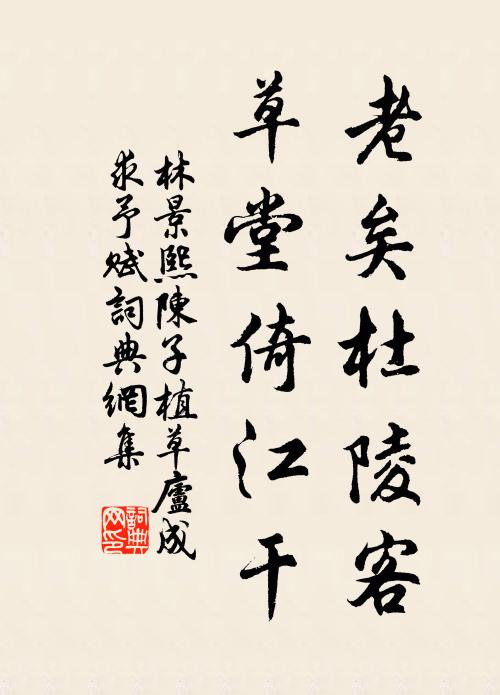 老矣杜陵客
草堂倚江干
林景熙陳子植草廬成
求予賦詞典網集
詞典
网印